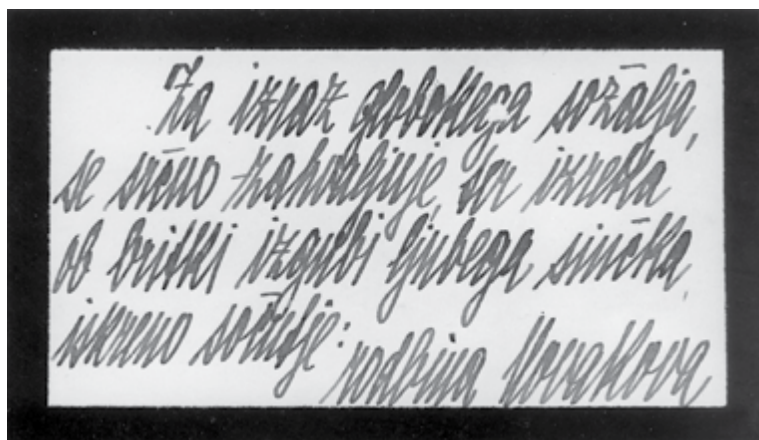 Za izraz globokega sožalja,
se srčno zahvaljuje, ter izreka
ob britki izgubi ljubega sinčka,
iskreno sočutje:
rodbina Novakova